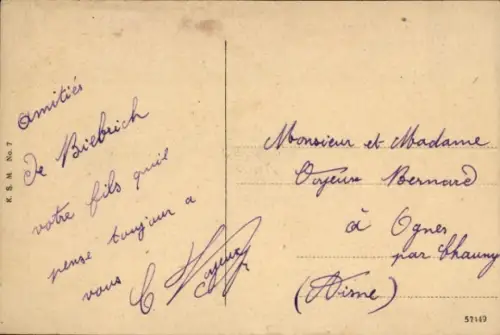 amitiés
de Biebrich
votre fils quil
pense toujour a
vous
Monsieur et Madame
Voyeux Bernard
à Ognes
par Chauny
(Aisne)
K. S. M. No. 7
57149